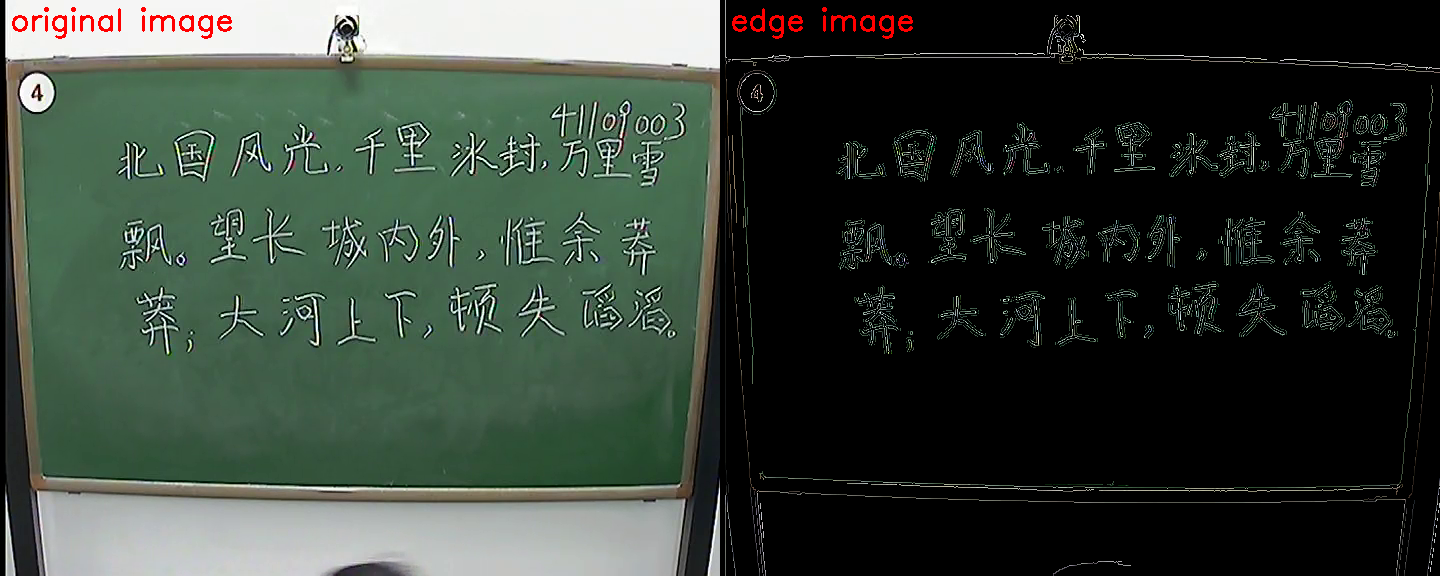 original image
4
41109003
北国风光,千里冰封,万里雪
飘。望长城内外,惟余莽
莽;大河上下,顿失滔滔。
edge image
4
41109003
北国风光,千里冰封,万里雪
飘。望长城内外,惟余莽
莽;大河上下,顿失滔滔。